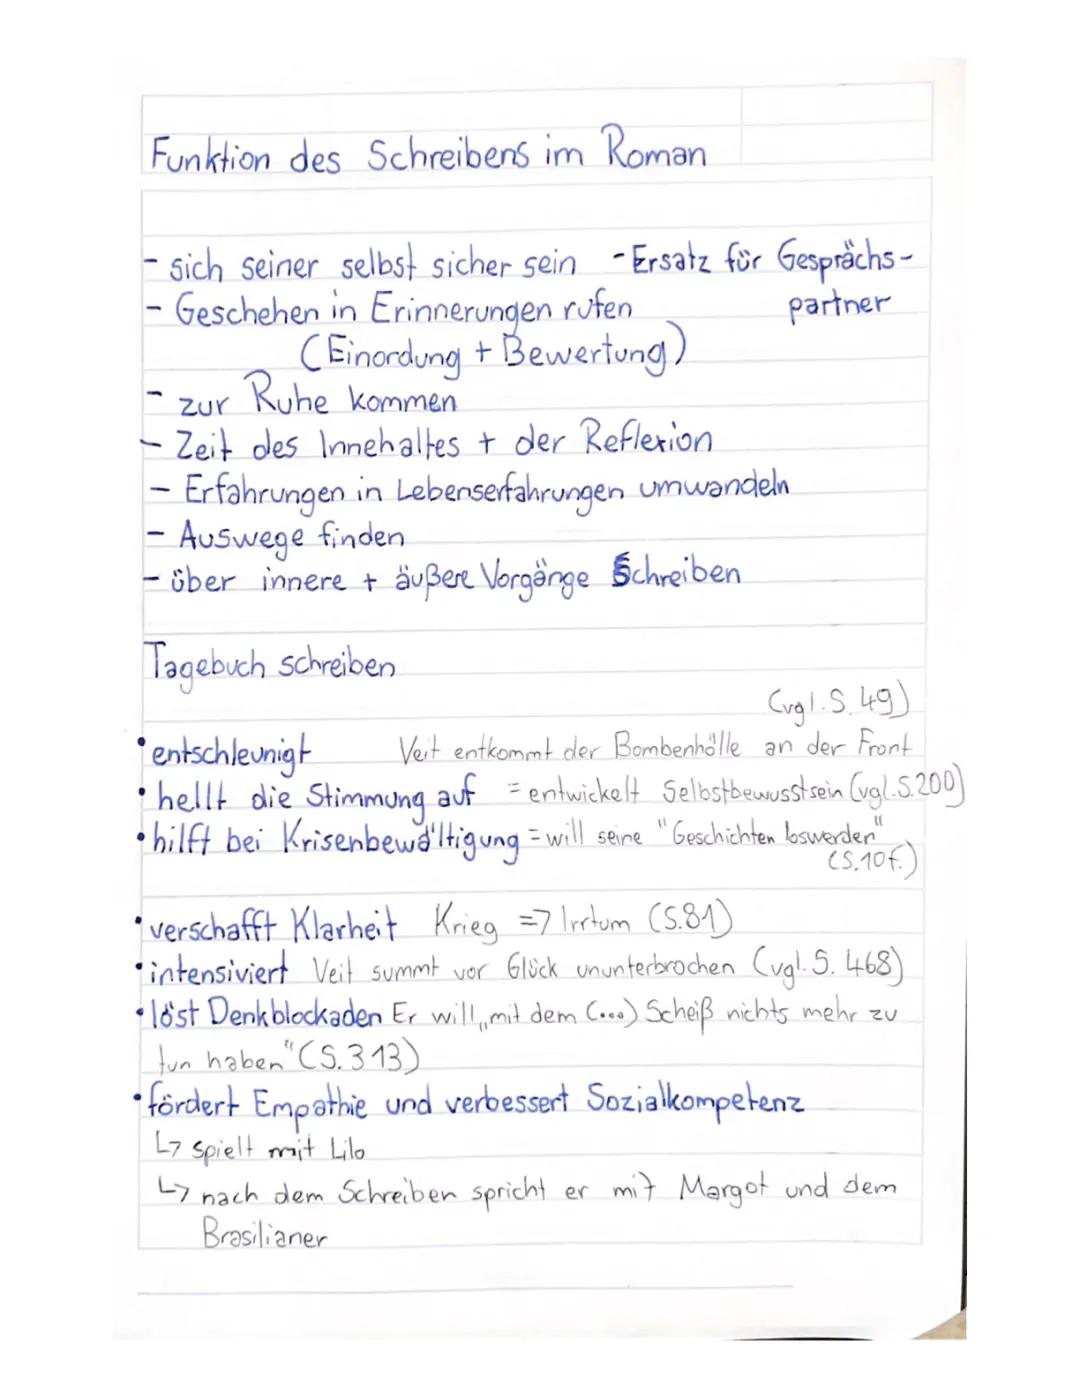 Funktion des Schreibens im Roman
- sich seiner selbst sicher sein - Ersatz für Gesprächs-
partner
- Geschehen in Erinnerungen rufen
(Einordung + Bewertung)
- zur Ruhe kommen
- Zeit des Innehaltes + der Reflexion
- Erfahrungen in Lebenserfahrungen umwandeln
- Auswege finden
- über innere + äußere Vorgänge Schreiben
Tagebuch schreiben
(vgl. S. 49)
• entschleunigt Veit entkommt der Bombenhölle an der Front
• hellt die Stimmung auf = entwickelt Selbstbewusstsein (vgl. S. 200)
• hilft bei Krisenbewältigung = will seine "Geschichten loswerden"
(S. 10f.)
• verschafft Klarheit Krieg => Irrtum (S. 81)
• intensiviert Veit summt vor Glück ununterbrochen (vgl. S. 468)
• löst Denkblockaden Er will „mit dem (...) Scheiß nichts mehr zu
tun haben" (S. 313)
• fördert Empathie und verbessert Sozialkompetenz
↳ spielt mit Lilo
↳ nach dem Schreiben spricht er mit Margot und dem
Brasilianer